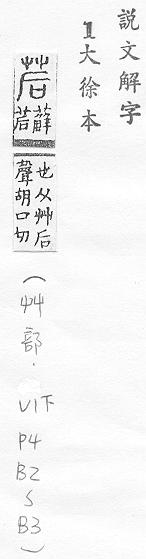 説文解字
1大徐本
茩薢茩
也从艸后
聲胡口切
(艸部.V1下P4B2~B3)